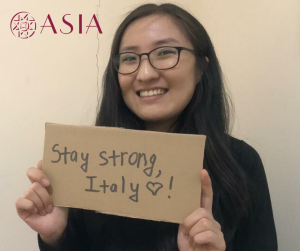 ASIA
Stay strong,
Italy ♡!